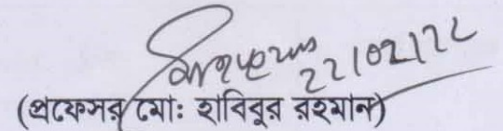 22/02/22
(প্রফেসর মোঃ হাবিবুর রহমান)